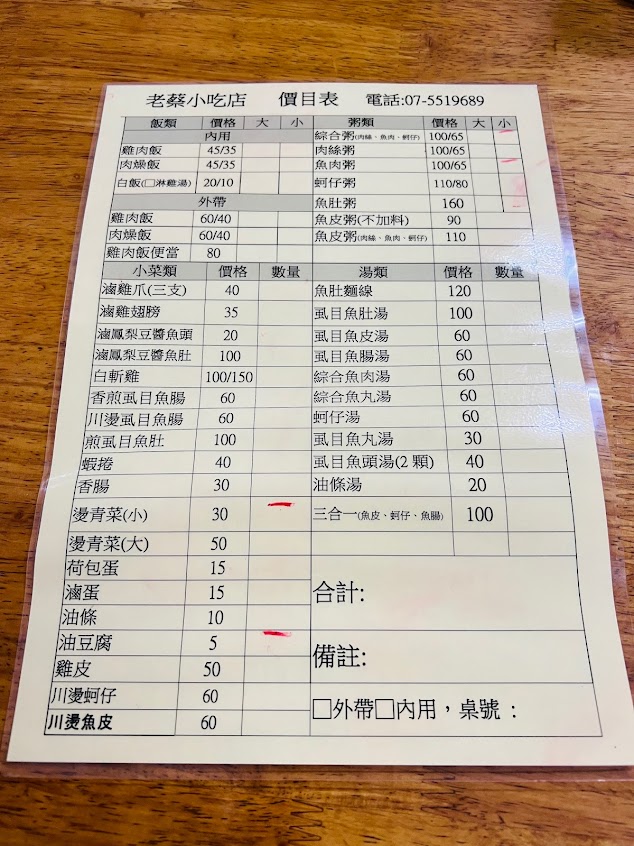 老蔡小吃店 價目表 電話:07-5519689
飯類 價格 大 小
內用
雞肉飯 45/35
肉燥飯 45/35
白飯(□淋雞湯) 20/10
外帶
雞肉飯 60/40
肉燥飯 60/40
雞肉飯便當 80
粥類 價格 大 小
綜合粥(肉絲、魚肉、蚵仔) 100/65
肉絲粥 100/65
魚肉粥 100/65
蚵仔粥 110/80
魚肚粥 160
魚皮粥(不加料) 90
魚皮粥(肉絲、魚肉、蚵仔) 110
小菜類 價格 數量
滷雞爪(三支) 40
滷雞翅膀 35
滷鳳梨豆醬魚頭 20
滷鳳梨豆醬魚肚 100
白斬雞 100/150
香煎虱目魚腸 60
川燙虱目魚腸 60
煎虱目魚肚 100
蝦捲 40
香腸 30
燙青菜(小) 30
燙青菜(大) 50
荷包蛋 15
滷蛋 15
油條 10
油豆腐 5
雞皮 50
川燙蚵仔 60
川燙魚皮 60
湯類 價格 數量
魚肚麵線 120
虱目魚肚湯 100
虱目魚皮湯 60
虱目魚腸湯 60
綜合魚肉湯 60
綜合魚丸湯 60
蚵仔湯 60
虱目魚丸湯 30
虱目魚頭湯(2 顆) 40
油條湯 20
三合一(魚皮、蚵仔、魚腸) 100
合計:
備註:
□外帶□內用，桌號：